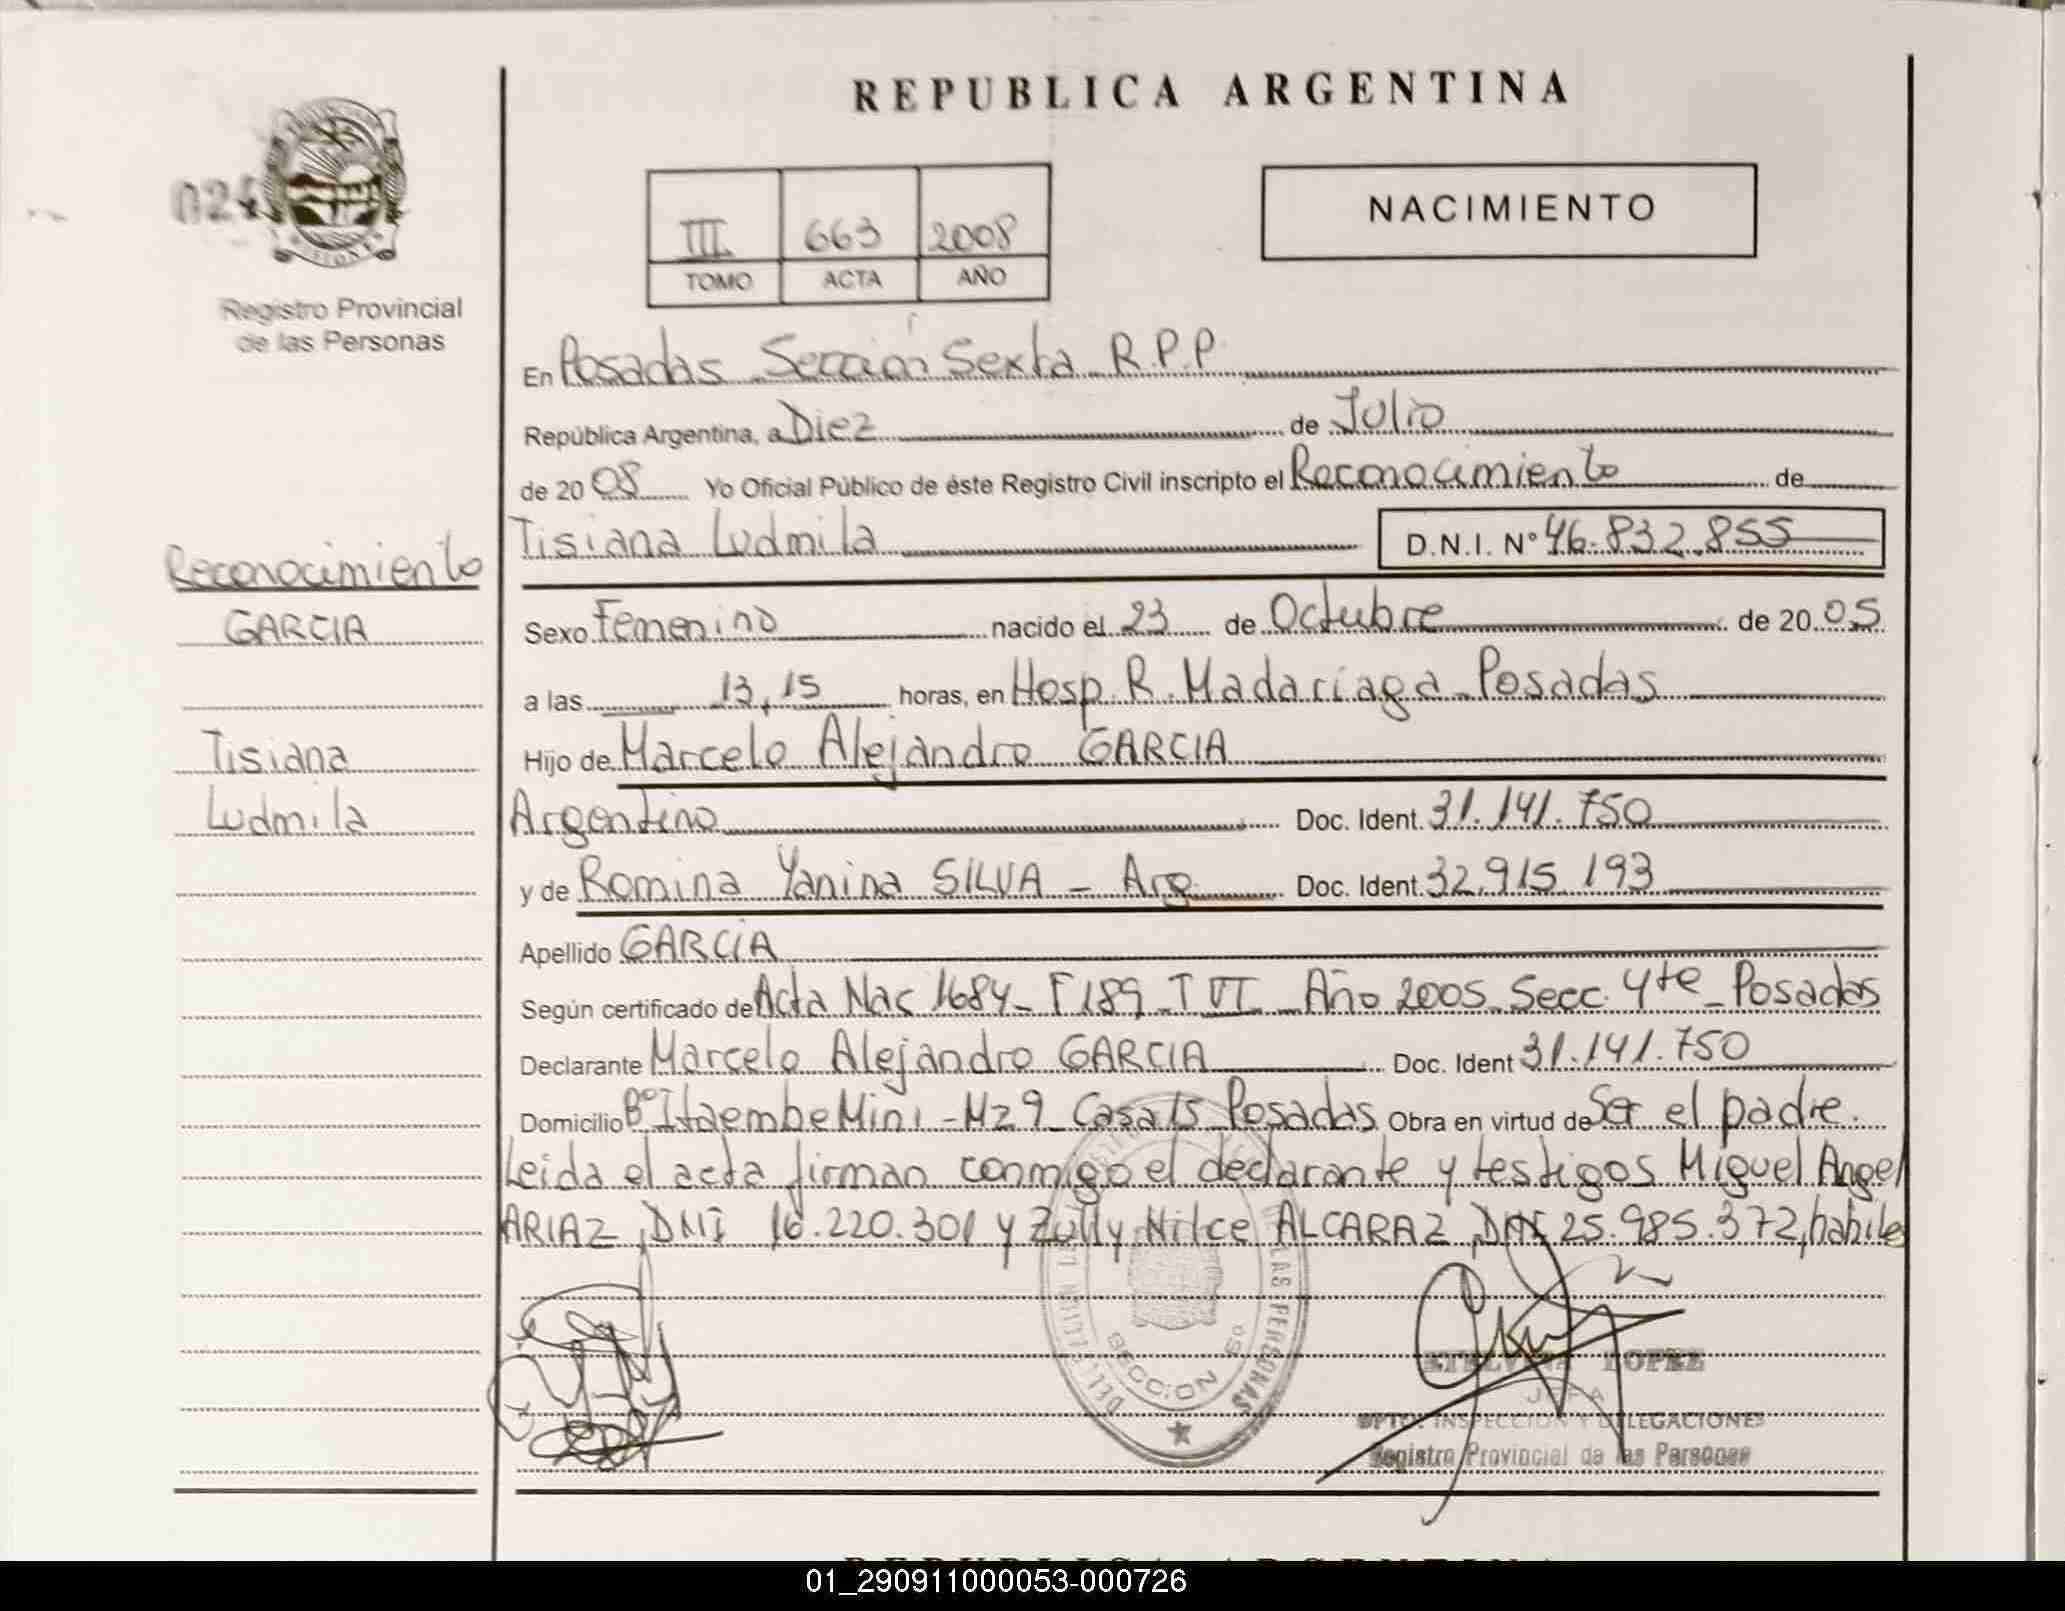 REPUBLICA ARGENTINA
III 663 2008
TOMO ACTA AÑO
NACIMIENTO
Registro Provincial
de las Personas
En Posadas Sección Sexta R.P.P.
República Argentina, a Diez de Julio
de 20 08 Yo Oficial Público de éste Registro Civil inscripto el Reconocimiento de
Tisiana Ludmila D.N.I. Nº 46.832.855
Reconocimiento
GARCIA
Tisiana
Ludmila
Sexo Femenino nacido el 23 de Octubre de 20 05
a las 13,15 horas, en Hosp. R. Madariaga Posadas
Hijo de Marcelo Alejandro GARCIA
Argentino Doc. Ident. 31.141.750
y de Romina Yanina SILVA - Arg. Doc. Ident. 32.915.193
Apellido GARCIA
Según certificado de Acta Nac 1684_ F 189_ T VI_ Año 2005_ Secc. 4te_ Posadas
Declarante Marcelo Alejandro GARCIA Doc. Ident 31.141.750
Domicilio Bº Itaembe Mini - Mz 9_ Casa 15 Posadas Obra en virtud de Ser el padre.
Leida el acta firman conmigo el declarante y testigos Miguel Angel
ARIAZ, DNI 16.220.301 y Zully Nilce ALCARAZ, DNI 25.985.372, habiles
LAS PERSONAS
SECCION 6º
ETELVINA LOPEZ
JEFA
DPTO. INSPECCION Y DELEGACIONES
Registro Provincial de las Personas
01_290911000053-000726